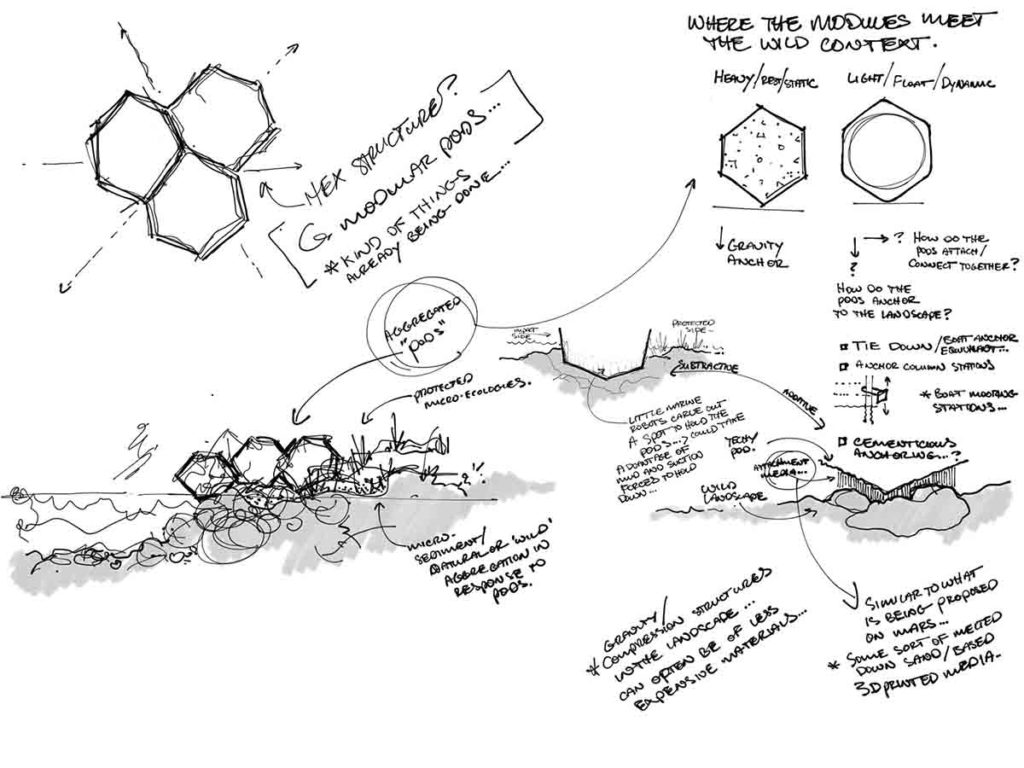 WHERE THE MODULES MEET
THE WILD CONTEXT.
HEAVY/REST/STATIC
LIGHT/FLOAT/DYNAMIC
HEX STRUCTURES?
MODULAR PODS...
*KIND OF THINGS
ALREADY BEING DONE...
GRAVITY
ANCHOR
? HOW DO THE
PODS ATTACH/
CONNECT TOGETHER?
?
HOW DO THE
PODS ANCHOR
TO THE LANDSCAPE?
TIE DOWN/BOAT ANCHOR
EQUIVALENT...
ANCHOR COLUMN STATIONS
* BOAT MOORING
STATIONS...
CEMENTICIOUS
ANCHORING...?
AGGREGATED
"PODS"
PROTECTED
MICRO-ECOLOGIES.
SIDE
PROTECTED
SIDE
SUBTRACTIVE
ADDITIVE
LITTLE MARINE
ROBOTS CARVE OUT
A SPOT TO HOLD THE
PODS...? COULD TAKE
ADVANTAGE OF
MUD AND SUCTION
FORCES TO HOLD
DOWN...
TECHY
POD.
ATTACHMENT
MEDIA...
WILD
LANDSCAPE
MICRO-
SEDIMENT/
NATURAL OR "WILD"
AGGREGATION IN
RESPONSE TO
PODS.
GRAVITY/
*COMPRESSION STRUCTURES
IN THE LANDSCAPE...
CAN OFTEN BE OF LESS
EXPENSIVE MATERIALS...
SIMILAR TO WHAT
IS BEING PROPOSED
ON MARS...
* SOME SORT OF MELTED
DOWN SAND/BASED
3D PRINTED MEDIA-